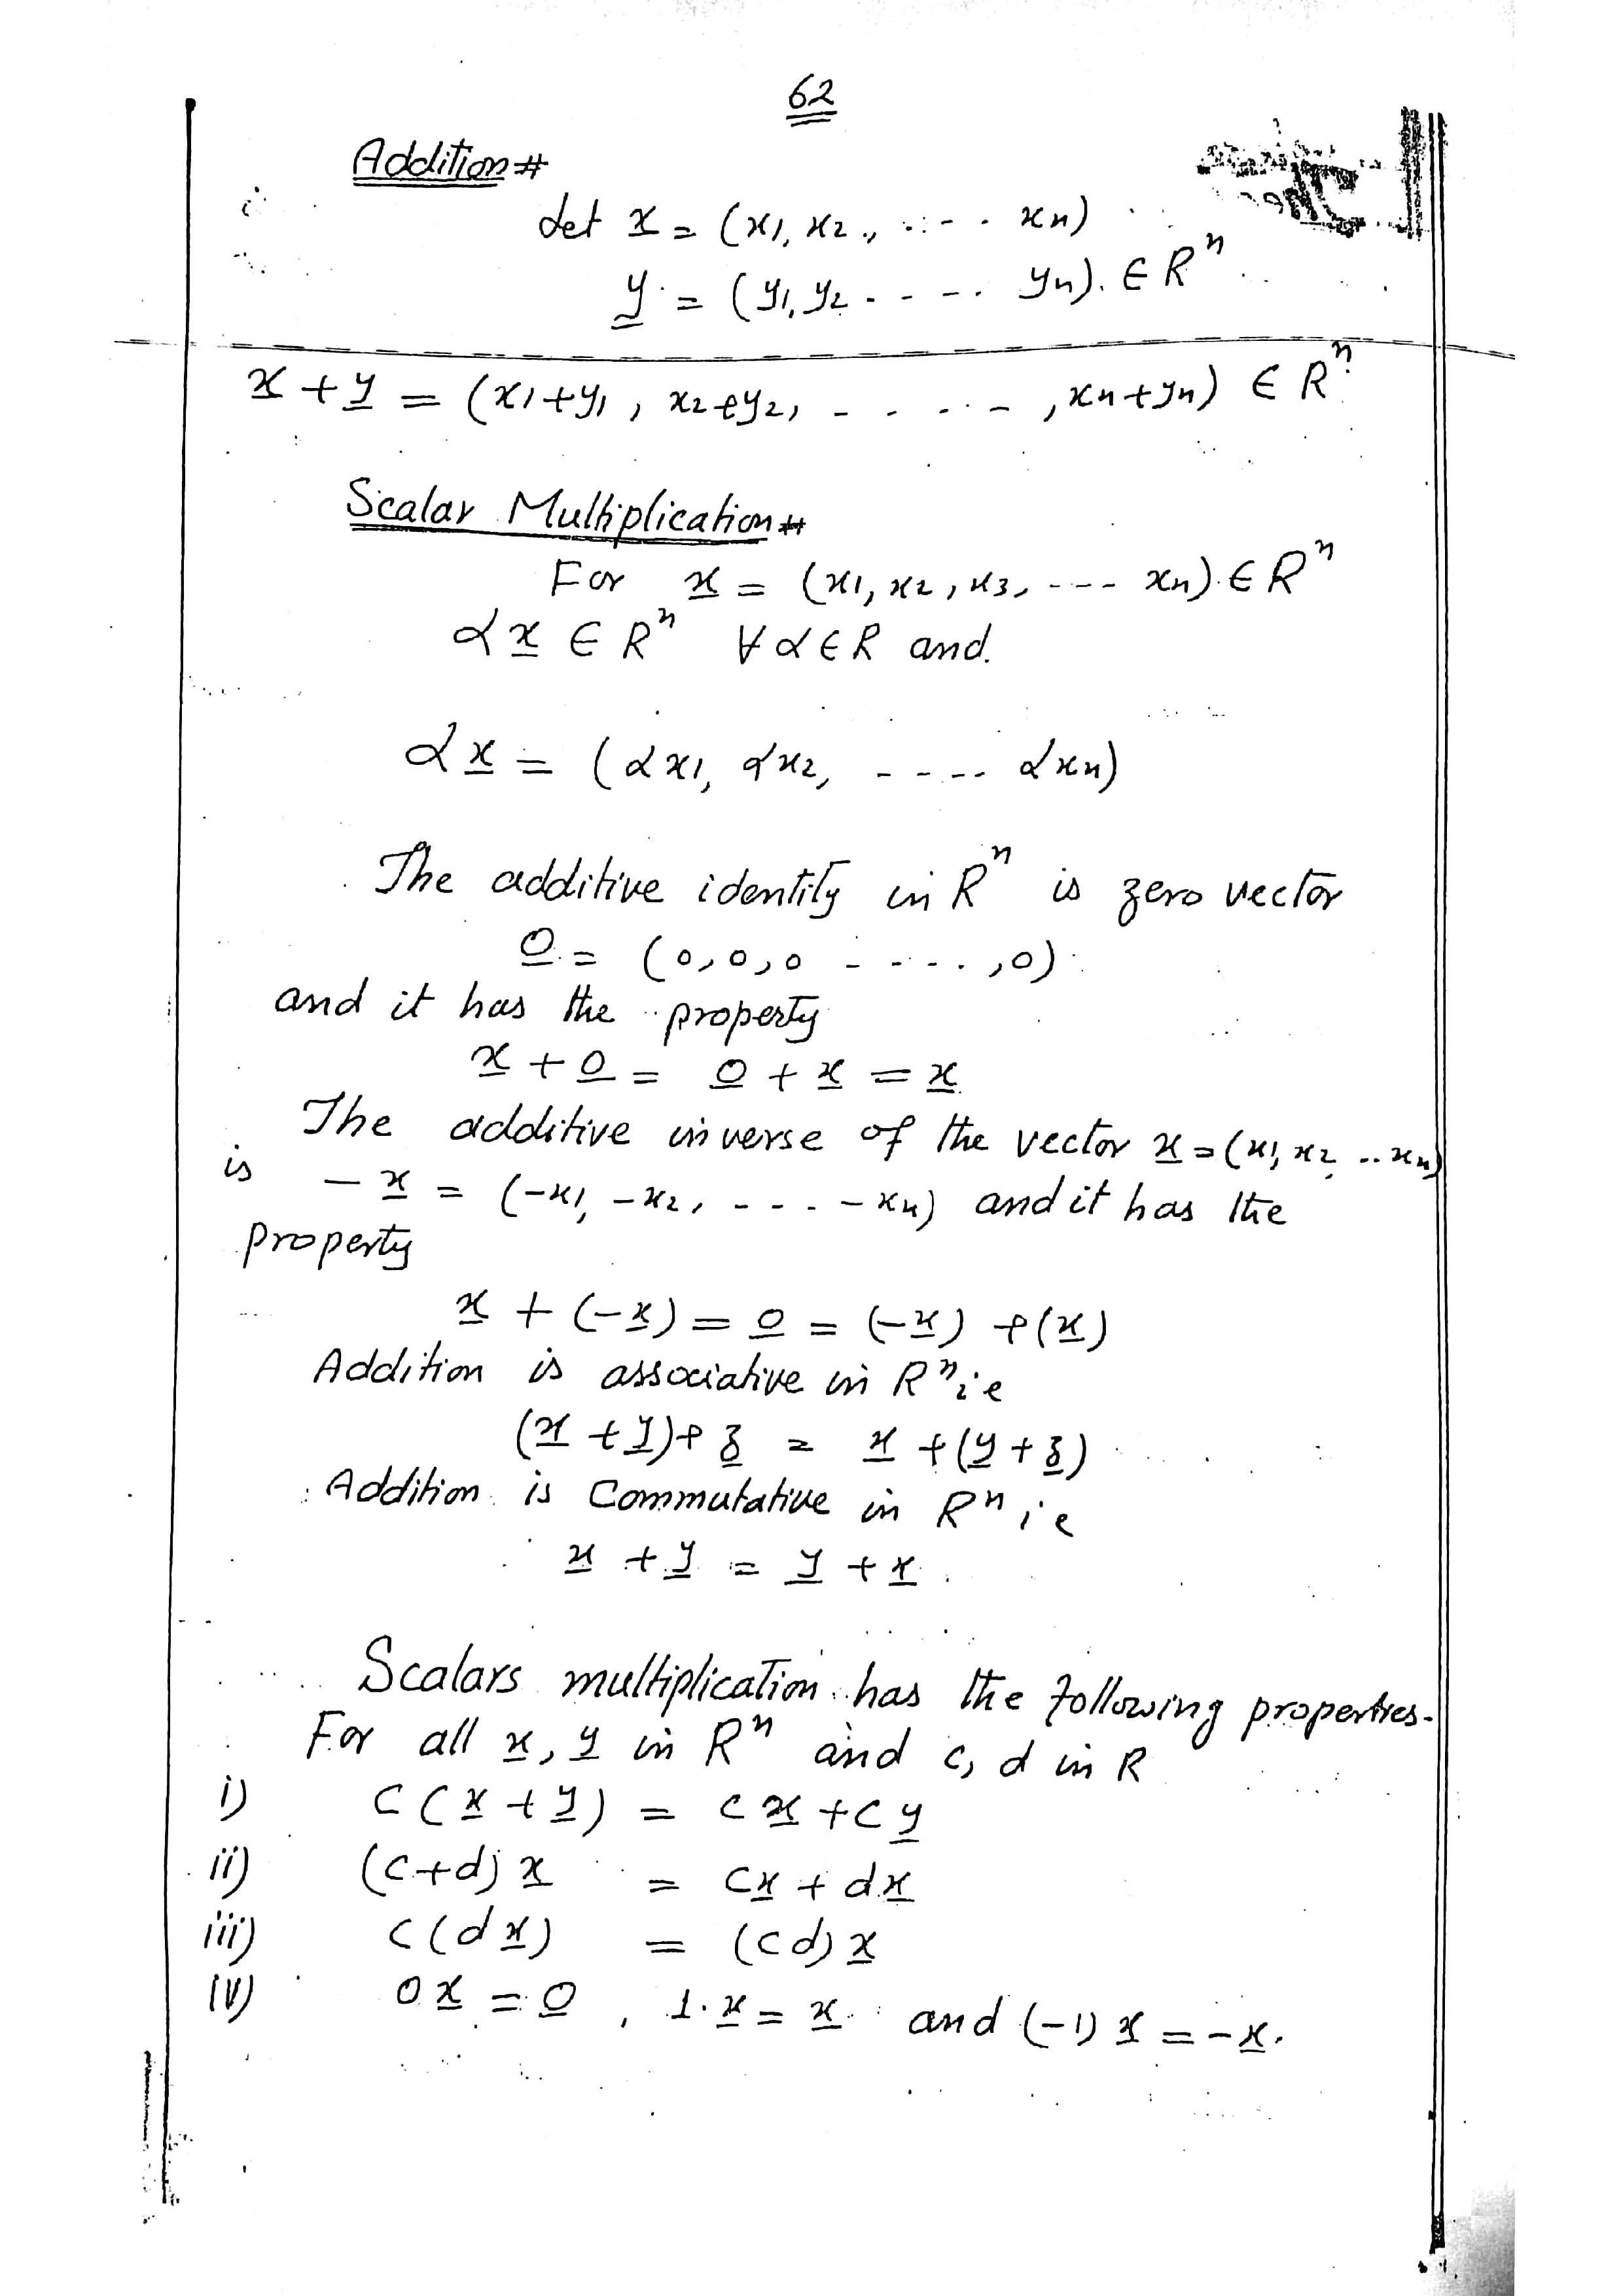 62
Addition #
Let x̲ = (x1, x2, ..... xn)
y̲ = (y1, y2 ..... yn). ∈ Rⁿ
x̲ + y̲ = (x1+y1, x2+y2, ....., xn+yn) ∈ Rⁿ
Scalar Multiplication #
For x̲ = (x1, x2, x3, .... xn). ∈ Rⁿ
αx̲ ∈ Rⁿ ∀ α ∈ R and.
αx̲ = (αx1, αx2, ..... αxn)
The additive identity in Rⁿ is zero vector
0̲ = (0, 0, 0 ....., 0)
and it has the property
x̲ + 0̲ = 0̲ + x̲ = x̲
The additive inverse of the vector x̲ = (x1, x2 .. xn)
is - x̲ = (-x1, -x2, .... -xn) and it has the
property
x̲ + (-x̲) = 0̲ = (-x̲) + (x̲)
Addition is associative in Rⁿ i.e
(x̲ + y̲) + z̲ = x̲ + (y̲ + z̲)
Addition is Commutative in Rⁿ i.e
x̲ + y̲ = y̲ + x̲.
Scalars multiplication has the following properties.
For all x̲, y̲ in Rⁿ and c, d in R
i) C(x̲ + y̲) = Cx̲ + Cy̲
ii) (C+d) x̲ = Cx̲ + dx̲
iii) C(dx̲) = (Cd) x̲
iv) 0x̲ = 0̲, 1.x̲ = x̲ and (-1) x̲ = -x̲.